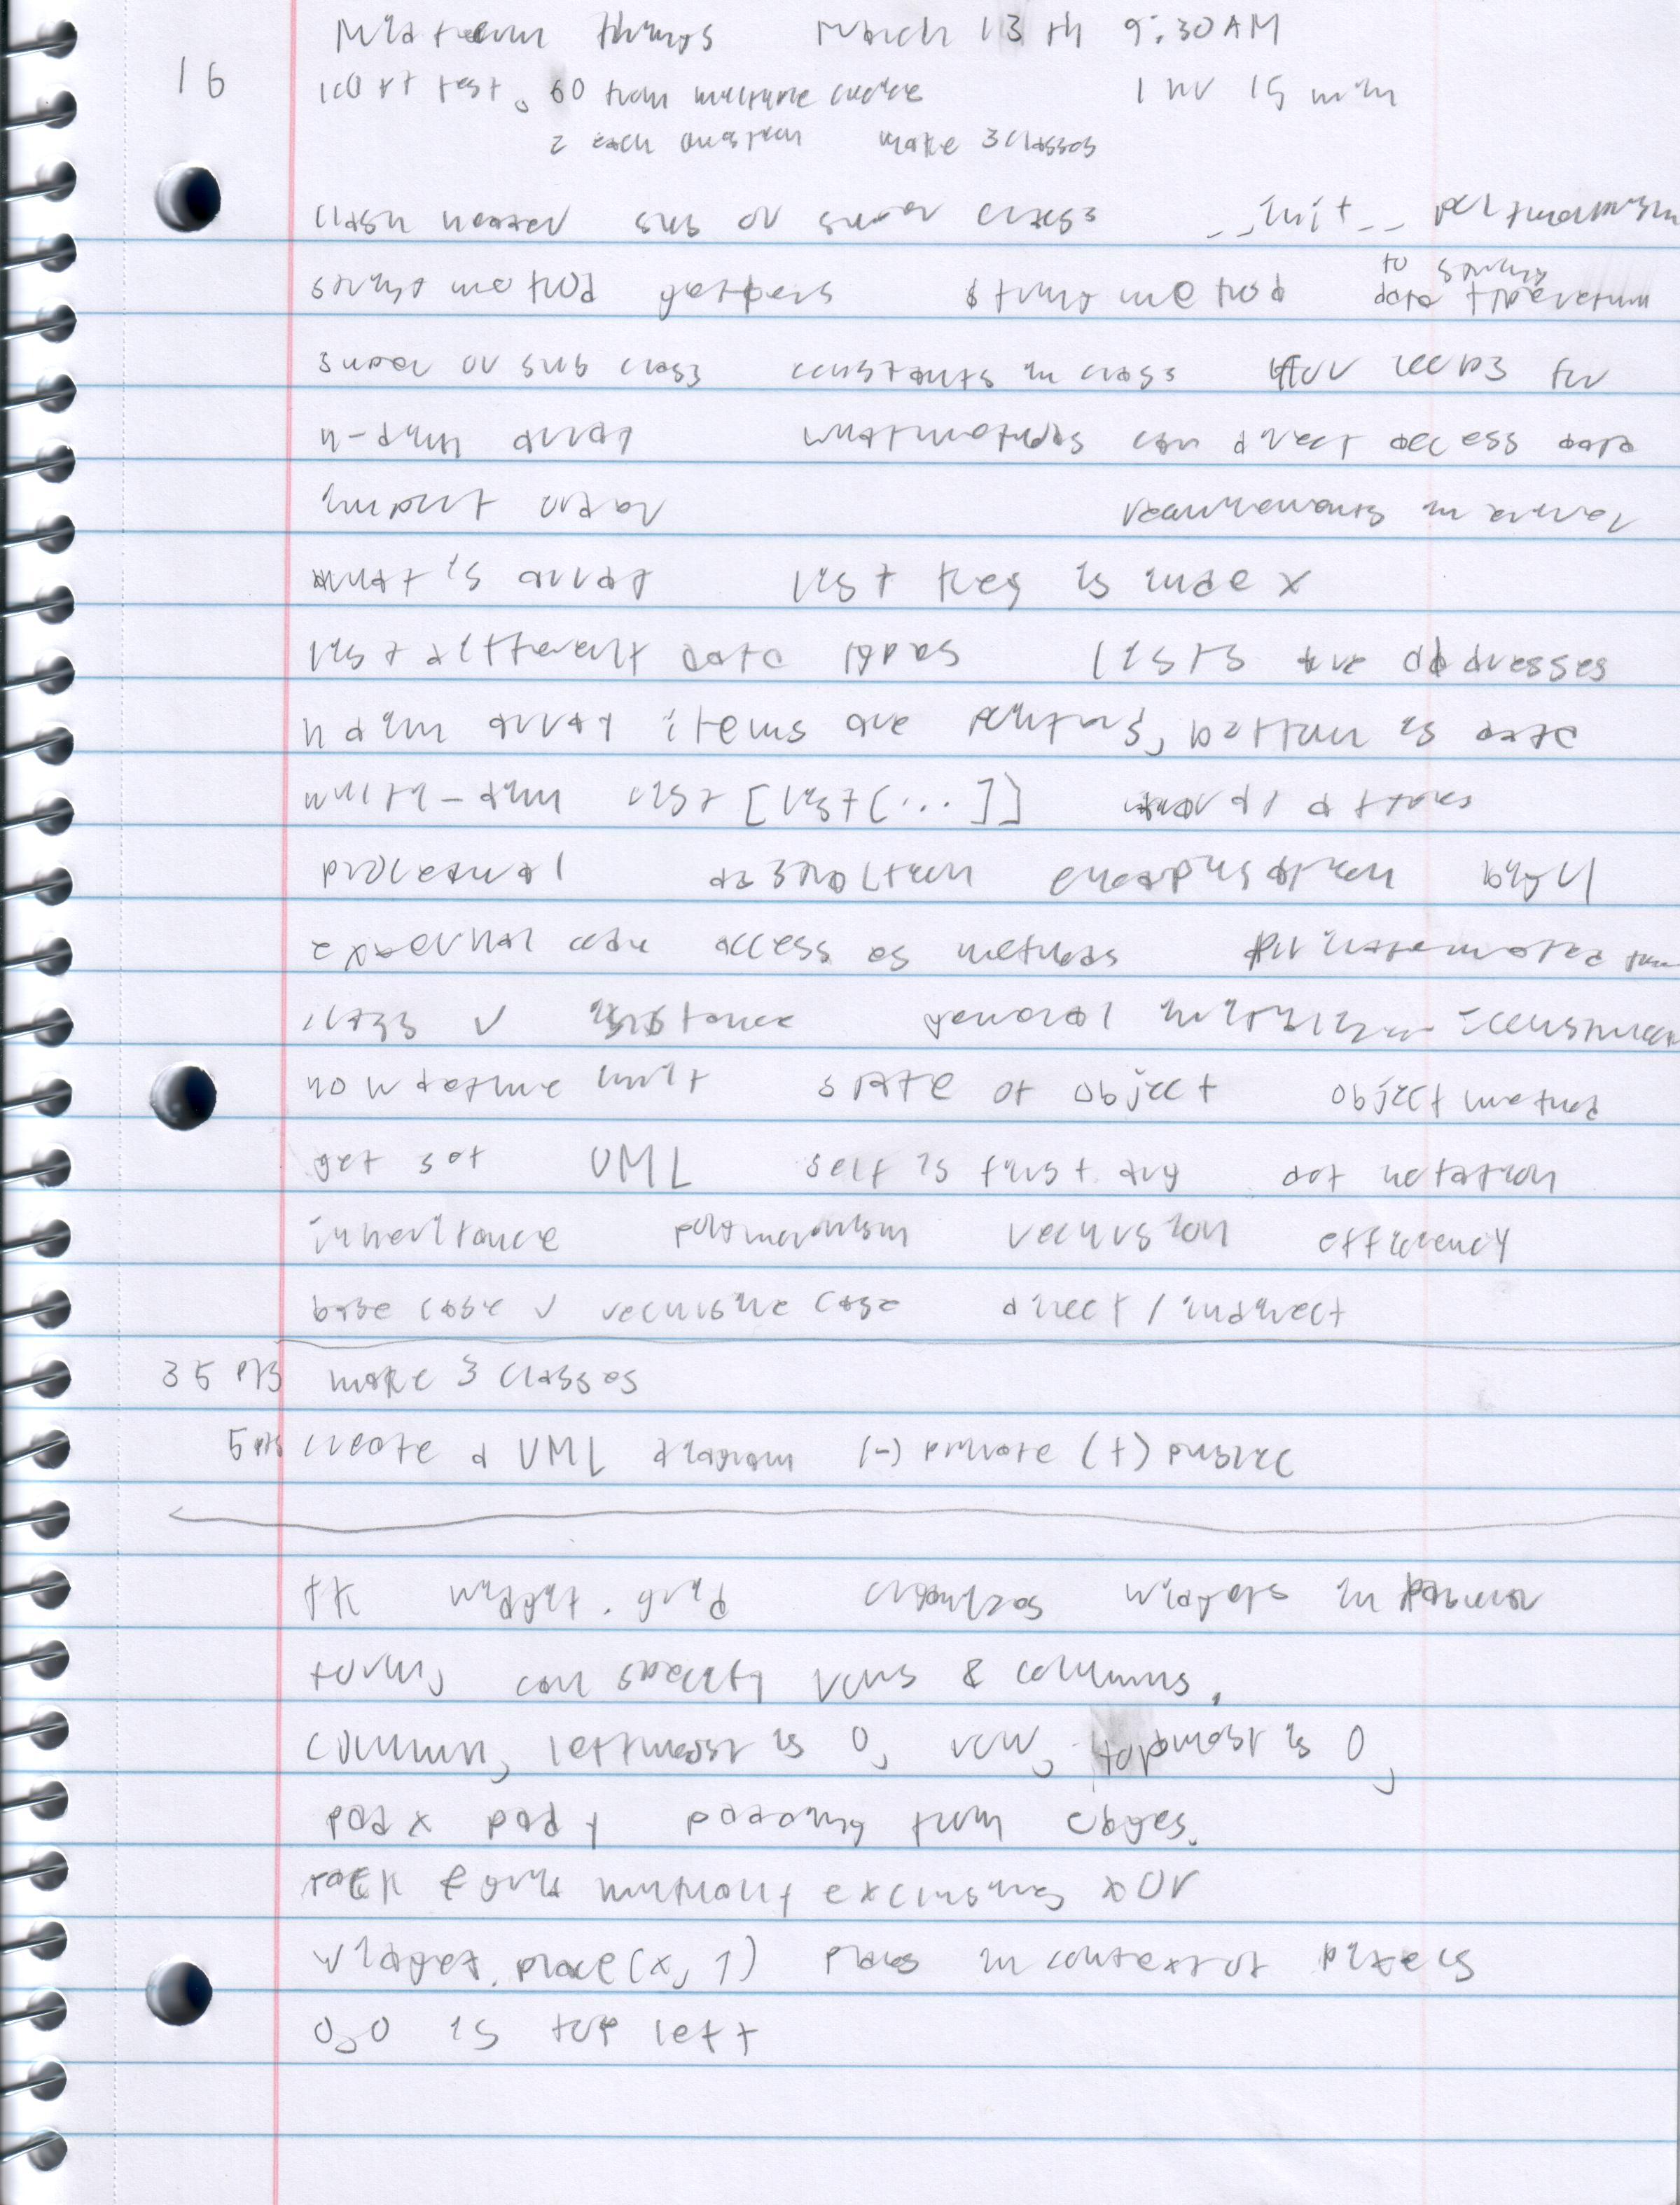 Midterm things March 13th 9:30AM
16 100 pt test. 60 from multiple choice 1 hr 15 min
2 each question make 3 classes
class header sub or super class __init__ polymorphism
string method getters string method to string data type return
super or sub class constants in class for loops for
n-dim array what methods can direct access data
import order requirements in
what is array list key is index
list different data types lists are addresses
n dim array items are pointers, bottom is data
multi-dim list [list[...]]
procedural abstraction encapsulation
external code access as methods
class v instance general
how define init state of object object method
get set UML self is first arg dot notation
inheritance polymorphism recursion efficiency
base case v recursive case direct / indirect
35 pts make 3 classes
5 pts create a UML diagram (-) private (+) public
tk widget.grid organizes widgets in
form, can specify rows & columns.
column, leftmost is 0, row, topmost is 0,
padx pady padding from edges.
pack & grid mutually exclusive, xor
widget.place(x, y) places in context of pixels
0,0 is top left